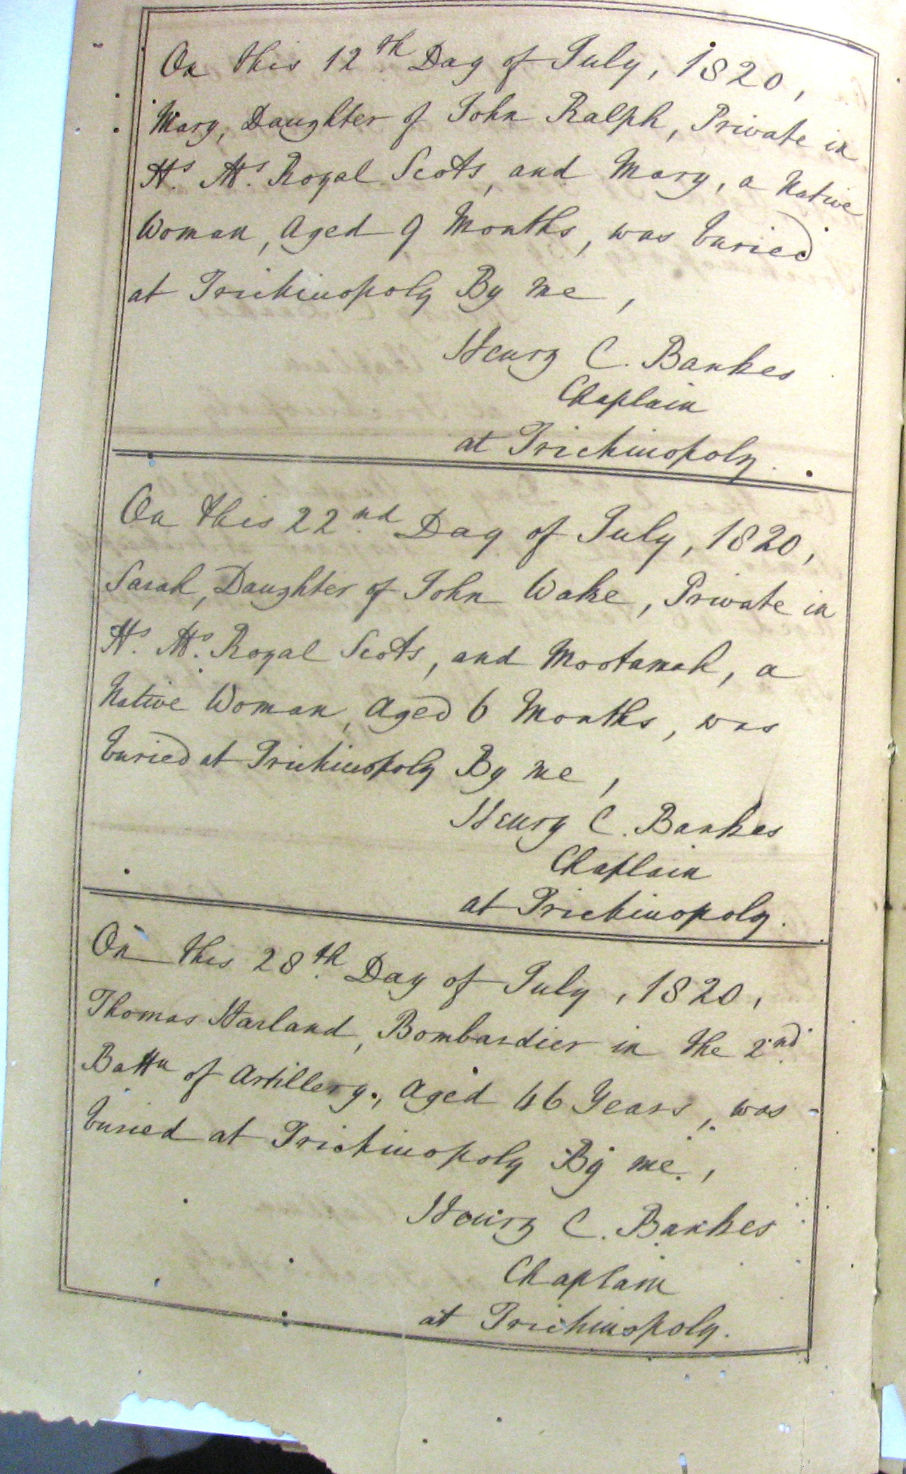 On this 12th Day of July, 1820,
Mary, Daughter of John Ralph, Private in
H.s M.s Royal Scots, and Mary, a Native
Woman, Aged 9 Months, was buried
at Trichinopoly By me,
Henry C. Bankes
Chaplain
at Trichinopoly.
On this 22nd Day of July, 1820,
Sarah, Daughter of John Wake, Private in
H.s M.s Royal Scots, and Mootamah, a
Native Woman, Aged 6 Months, was
buried at Trichinopoly By me,
Henry C. Bankes
Chaplain
at Trichinopoly.
On this 28th Day of July, 1820,
Thomas Harland, Bombardier in the 2nd
Battn of Artillery, Aged 46 Years, was
buried at Trichinopoly By me,
Henry C. Bankes
Chaplain
at Trichinopoly.